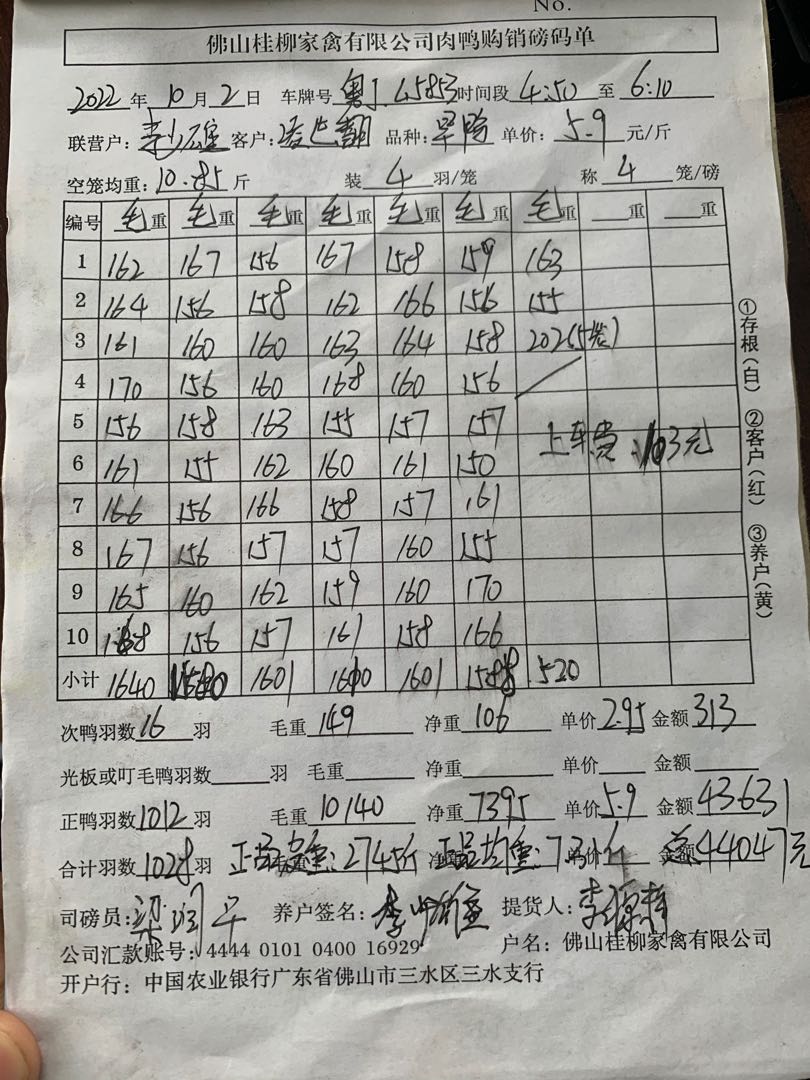 No.
佛山桂柳家禽有限公司肉鸭购销磅码单
2022年10月2日 车牌号 粤J45853 时间段 4:50 至 6:10
联营户: 客户: 品种: 单价: 5.9 元/斤
空笼均重: 10.85 斤 装 4 羽/笼 称 4 笼/磅
编号 毛重 毛重 毛重 毛重 毛重 毛重 毛重 重 重
1 162 167 156 167 158 159 163
2 164 156 158 162 166 156 155
3 161 160 160 163 164 158 202(5笼)
4 170 156 160 168 160 156
5 156 158 163 155 157 157
上车费:103元
6 161 155 162 160 161 150
7 166 156 166 158 157 161
8 167 156 157 157 160 155
9 165 160 162 159 160 170
10 168 156 157 161 158 166
小计 1640 1601 1610 1601 1588 520
①存根(白) ②客户(红) ③养户(黄)
次鸭羽数 16 羽 毛重 149 净重 106 单价 2.95 金额 313
光板或叮毛鸭羽数 羽 毛重 净重 单价 金额
正鸭羽数 1012 羽 毛重 10140 净重 7395 单价 5.9 金额 43631
合计羽数 1028 羽 2745斤 正品均重: 44047元
司磅员: 养户签名: 提货人:
公司汇款账号: 4444 0101 0400 16929 户名: 佛山桂柳家禽有限公司
开户行: 中国农业银行广东省佛山市三水区三水支行